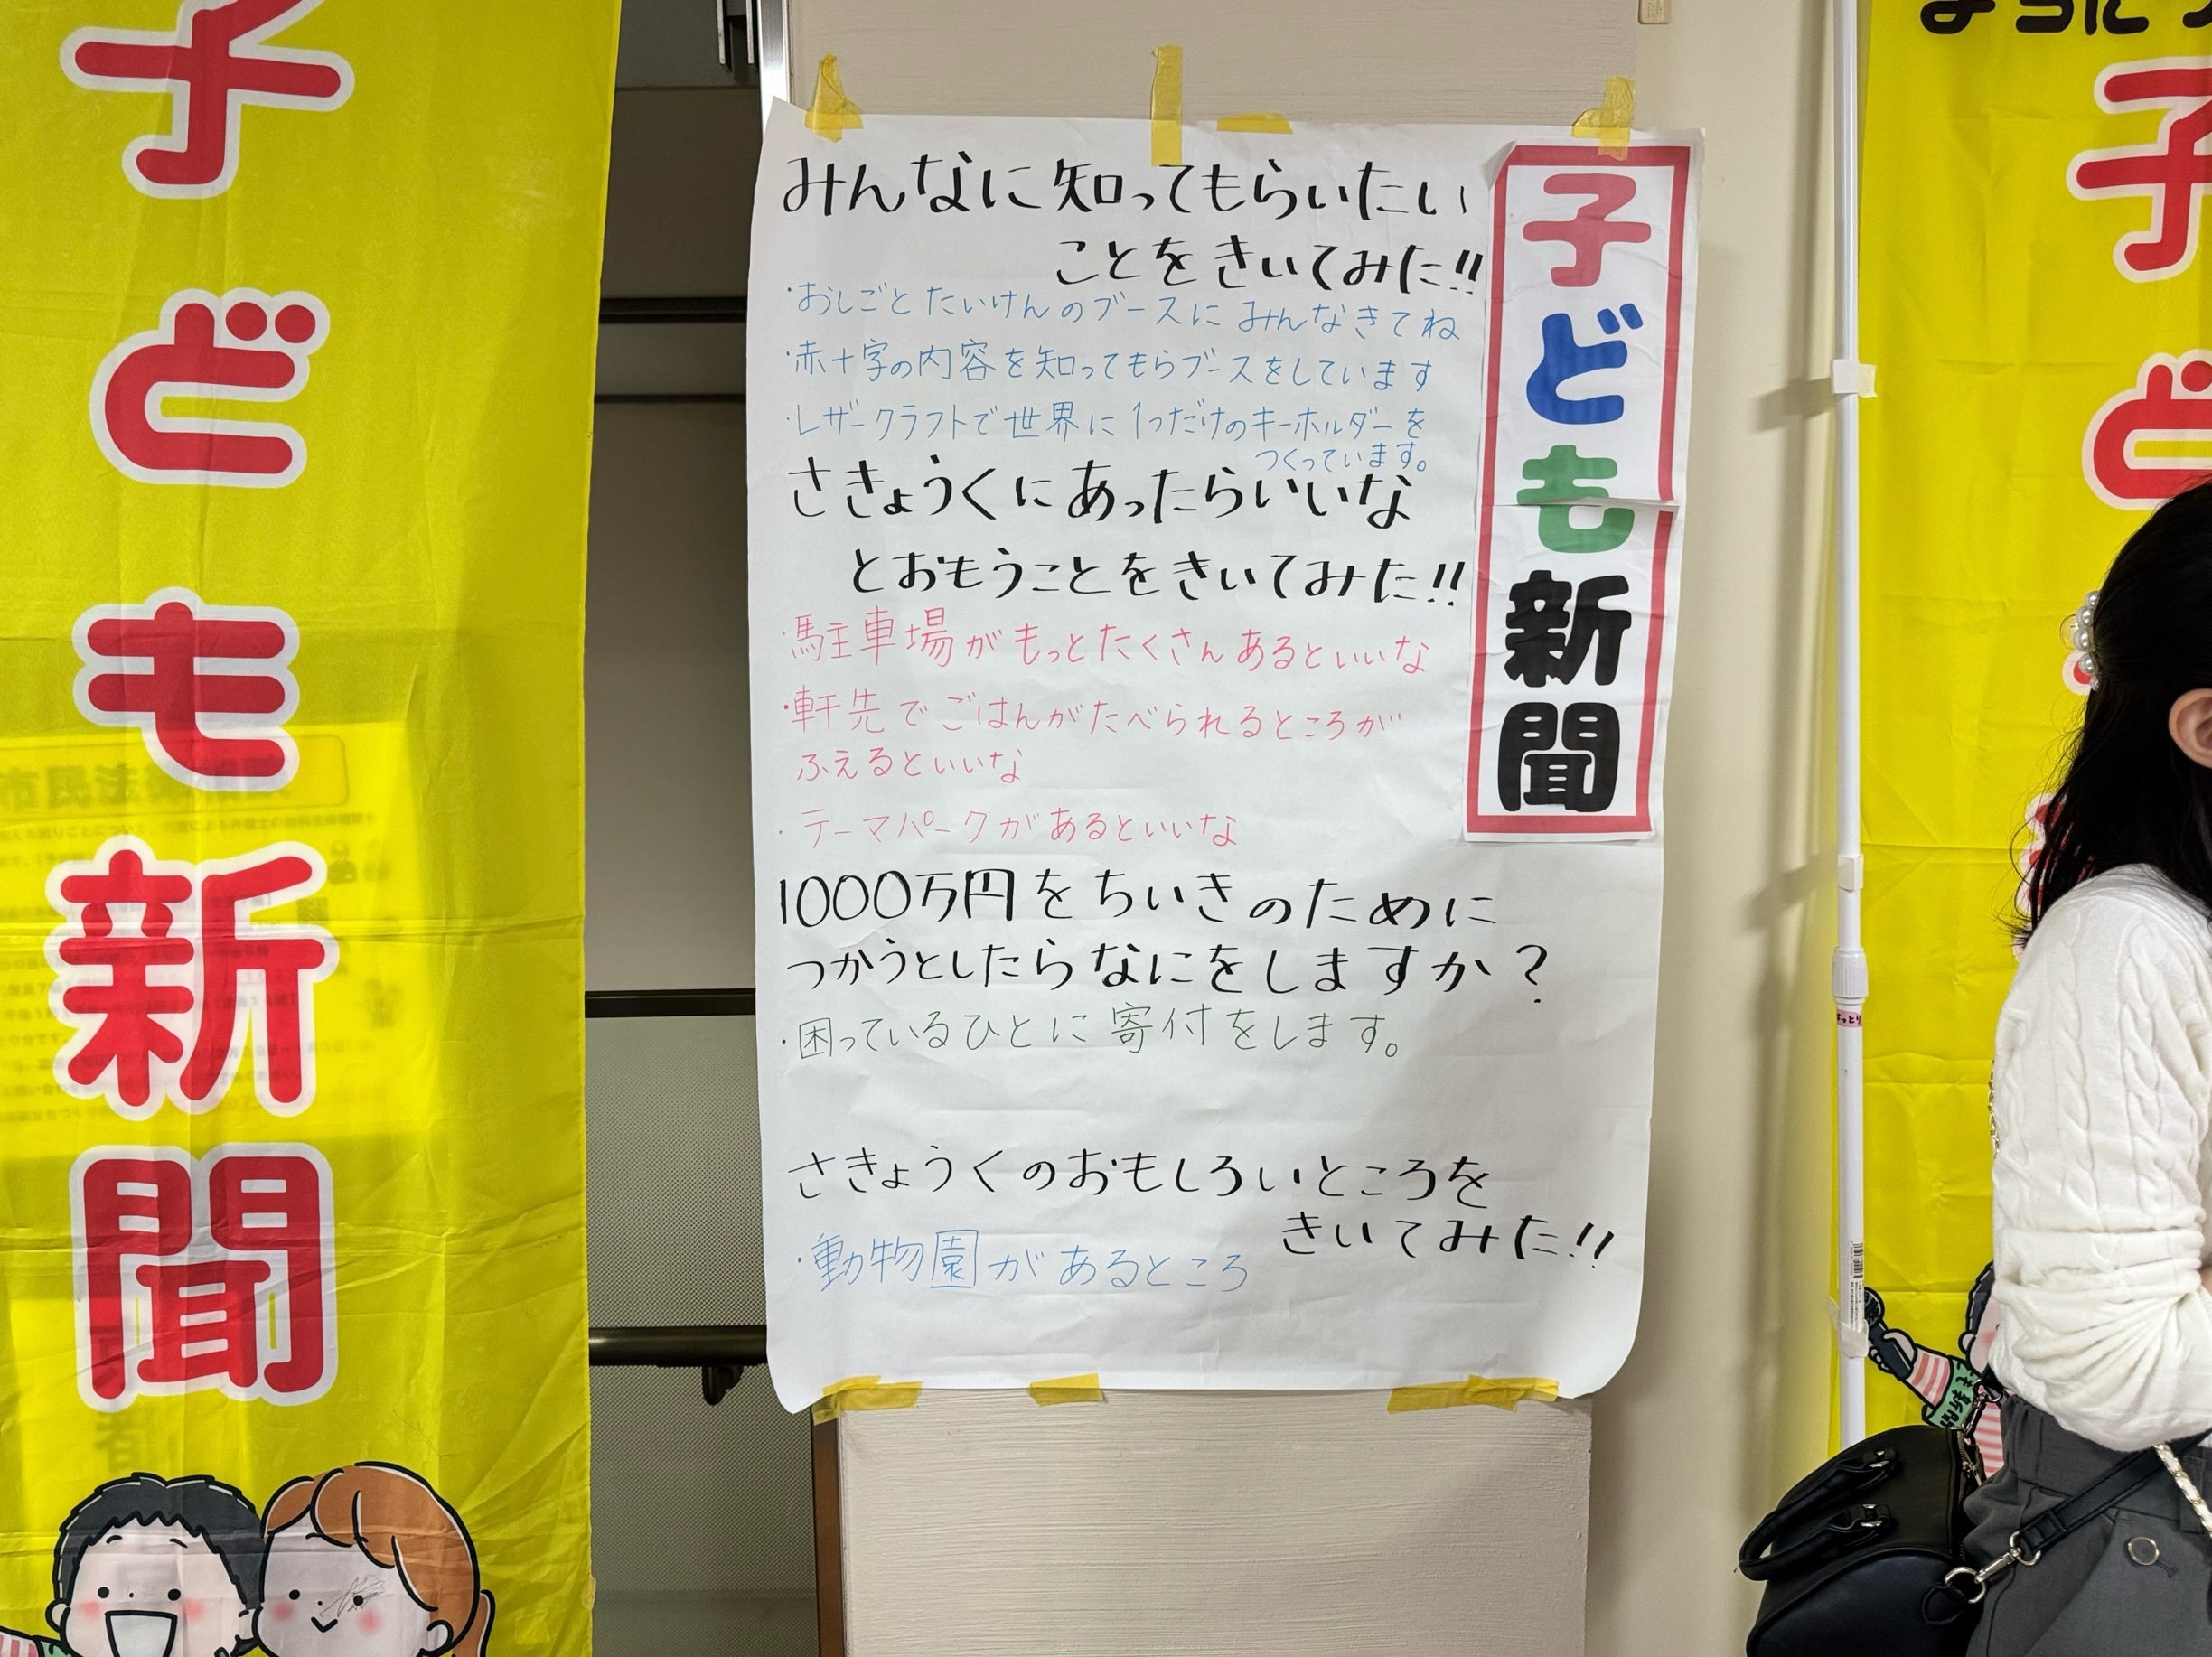 子ども新聞
みんなに知ってもらいたい
ことをきいてみた!!
・おしごとたいけんのブースにみんなきてね
・赤十字の内容を知ってもらブースをしています
・レザークラフトで世界に1つだけのキーホルダーを
つくっています。
さきょうくにあったらいいな
とおもうことをきいてみた!!
・駐車場がもっとたくさんあるといいな
・軒先でごはんがたべられるところが
ふえるといいな
・テーマパークがあるといいな
1000万円をちいきのために
つかうとしたらなにをしますか？
・困っているひとに寄付をします。
さきょうくのおもしろいところを
きいてみた!!
・動物園があるところ
子ども新聞
子ど